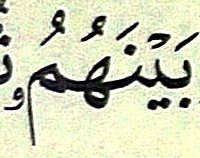 بَيْنَهُمُ